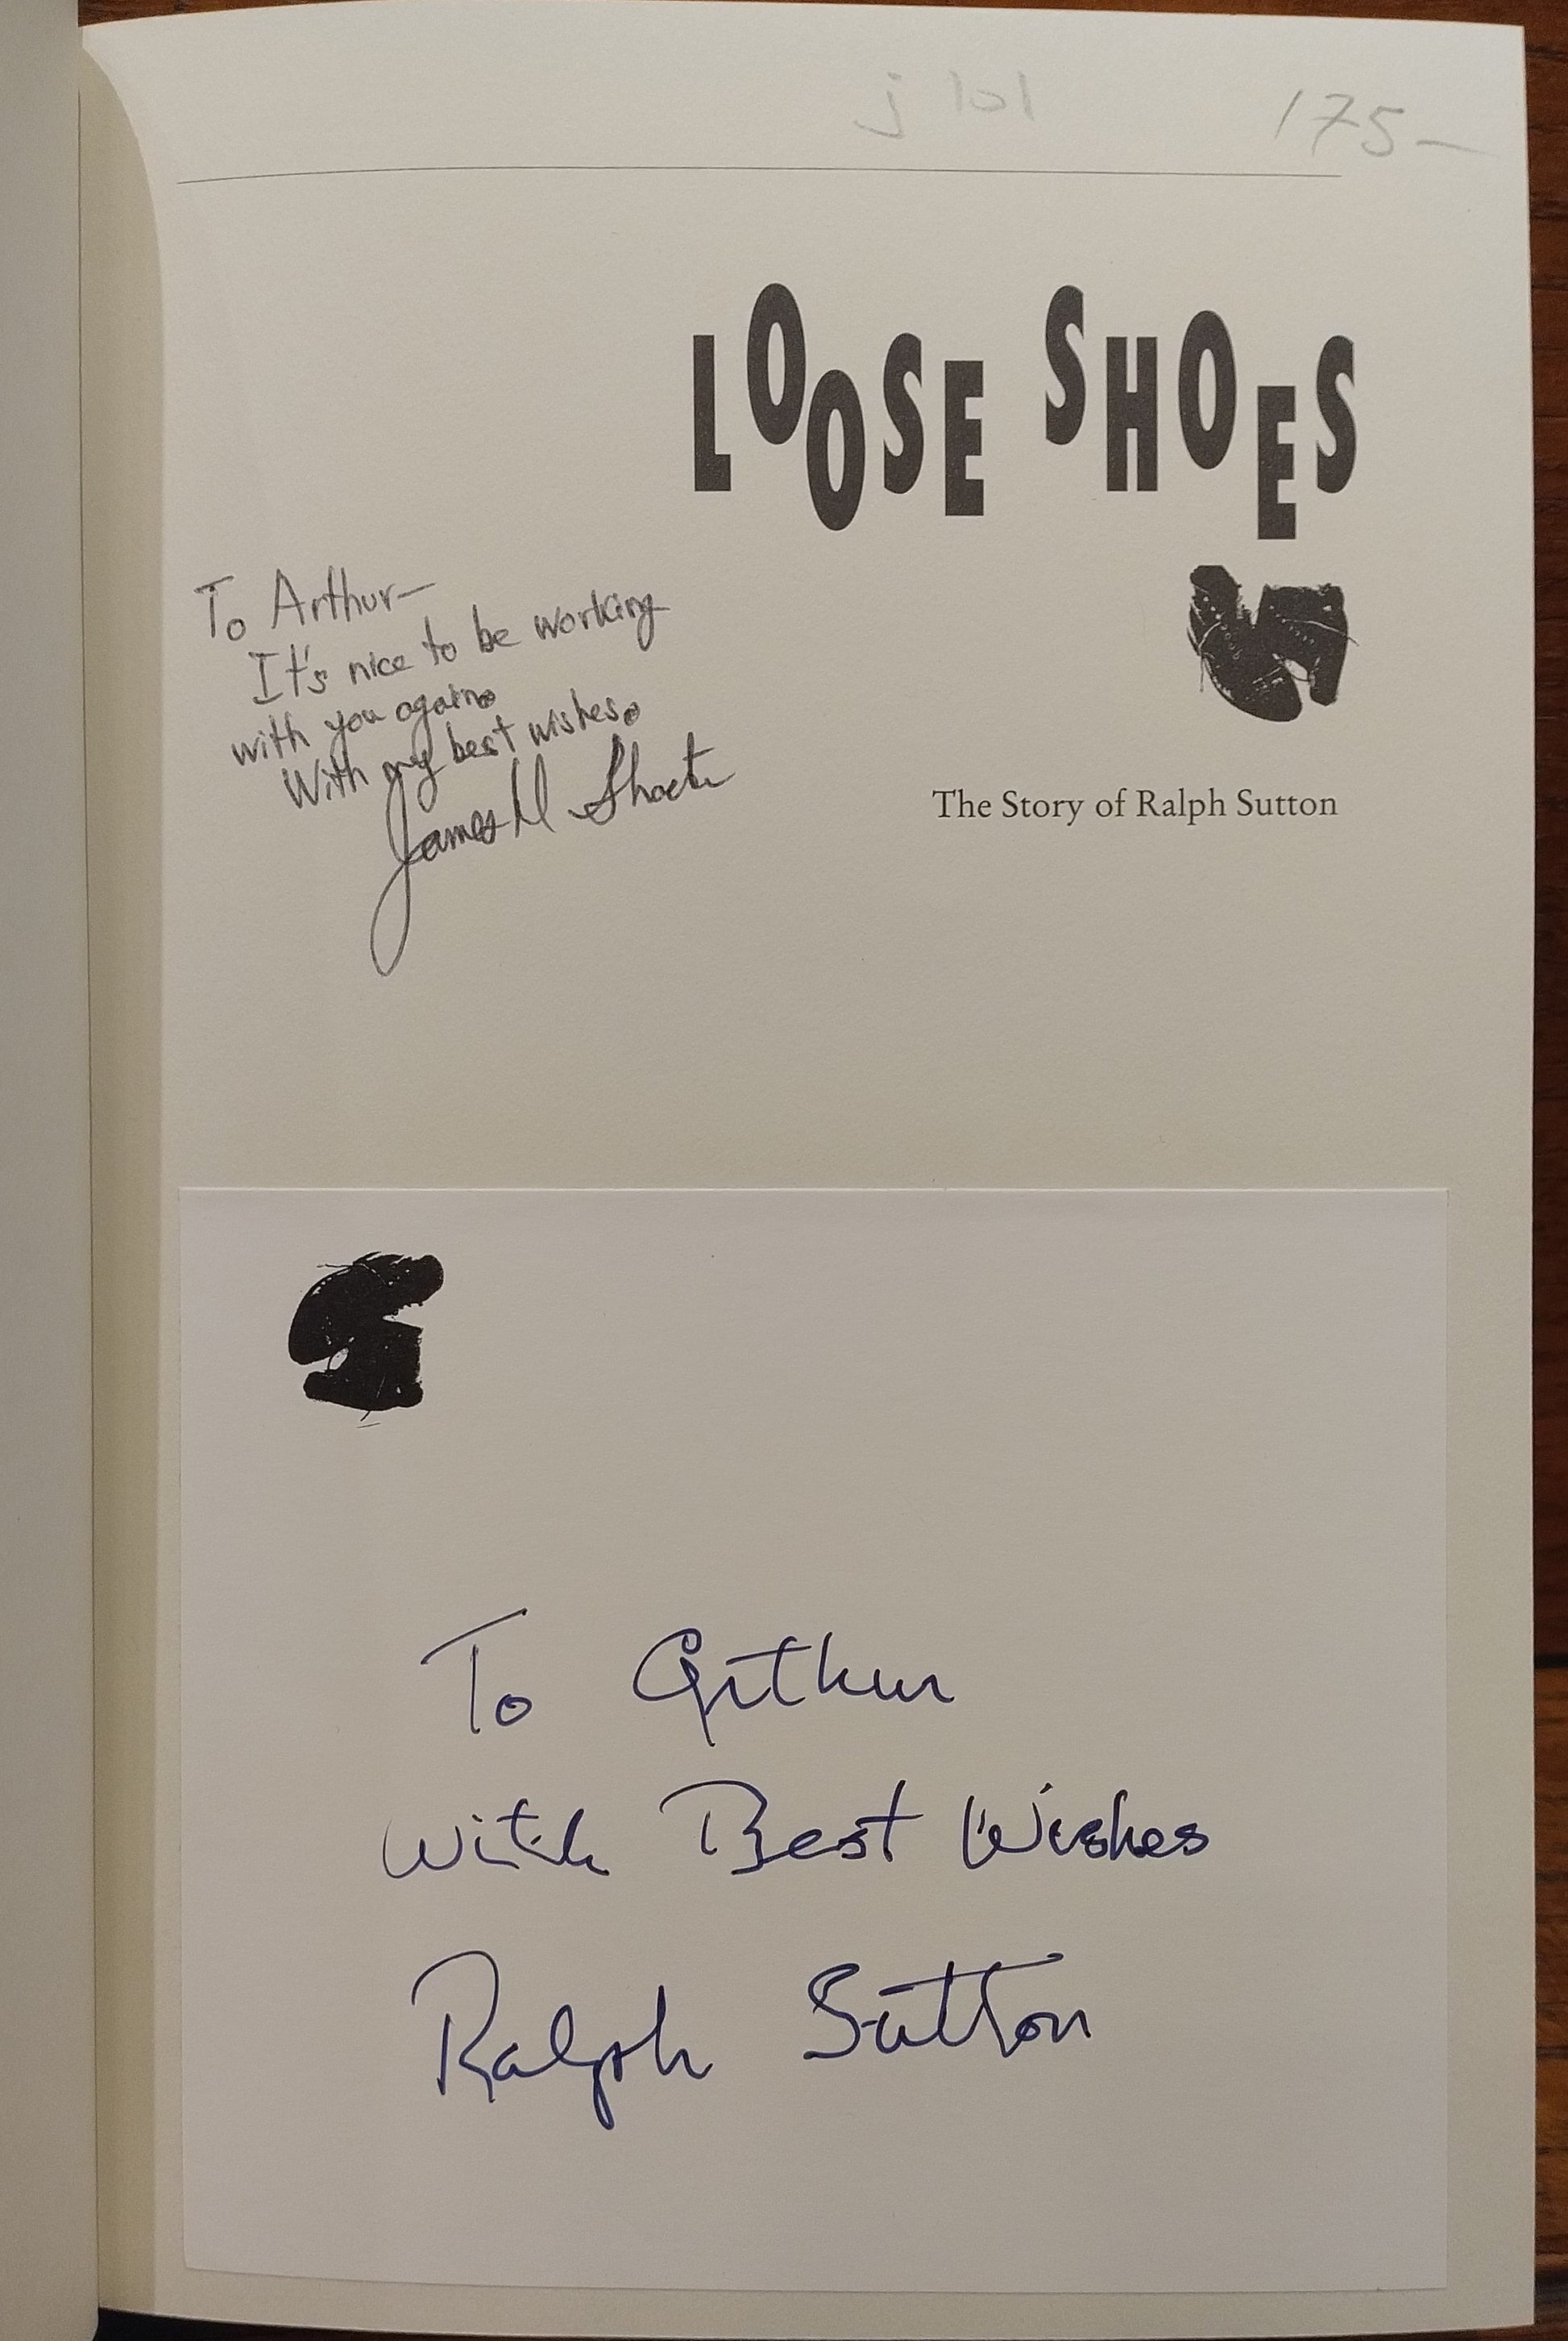 j 101 175-
LOOSE SHOES
To Arthur-
It's nice to be working
with you again.
With my best wishes.
James M Shacter
The Story of Ralph Sutton
To Arthur
With Best Wishes
Ralph Sutton